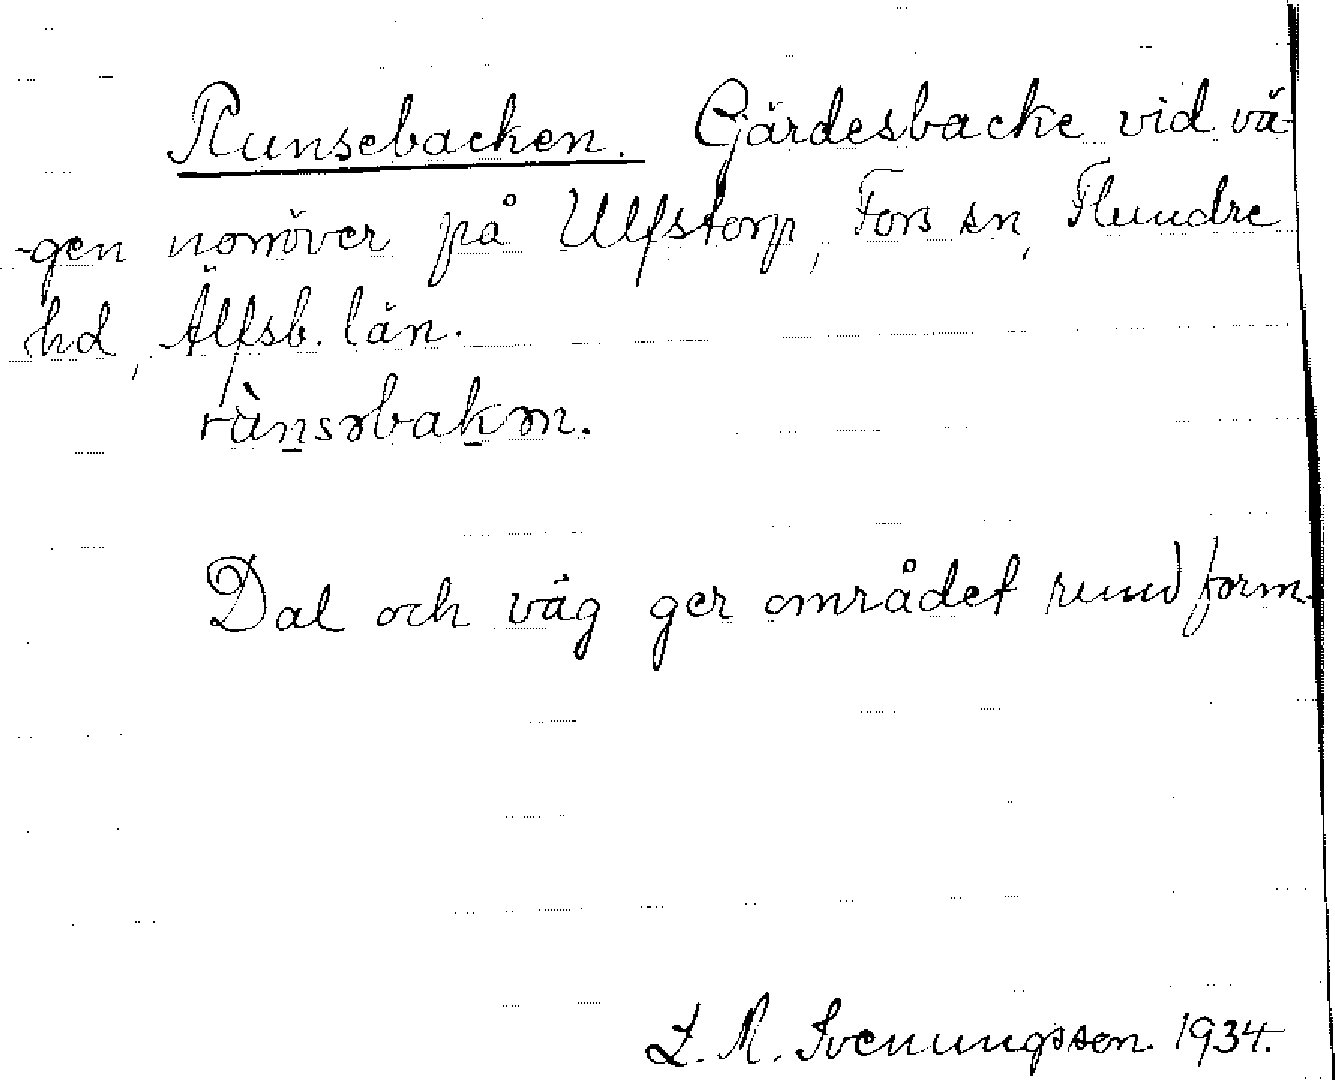 Runsebacken. Gärdesbacke vid vä-
-gen norröver på Ulfstorp, Fors sn, Flundre
hd, Älfsb. län.
rùnsəbakən.
Dal och väg ger området rund form.
L. M. Svenungsson. 1934.